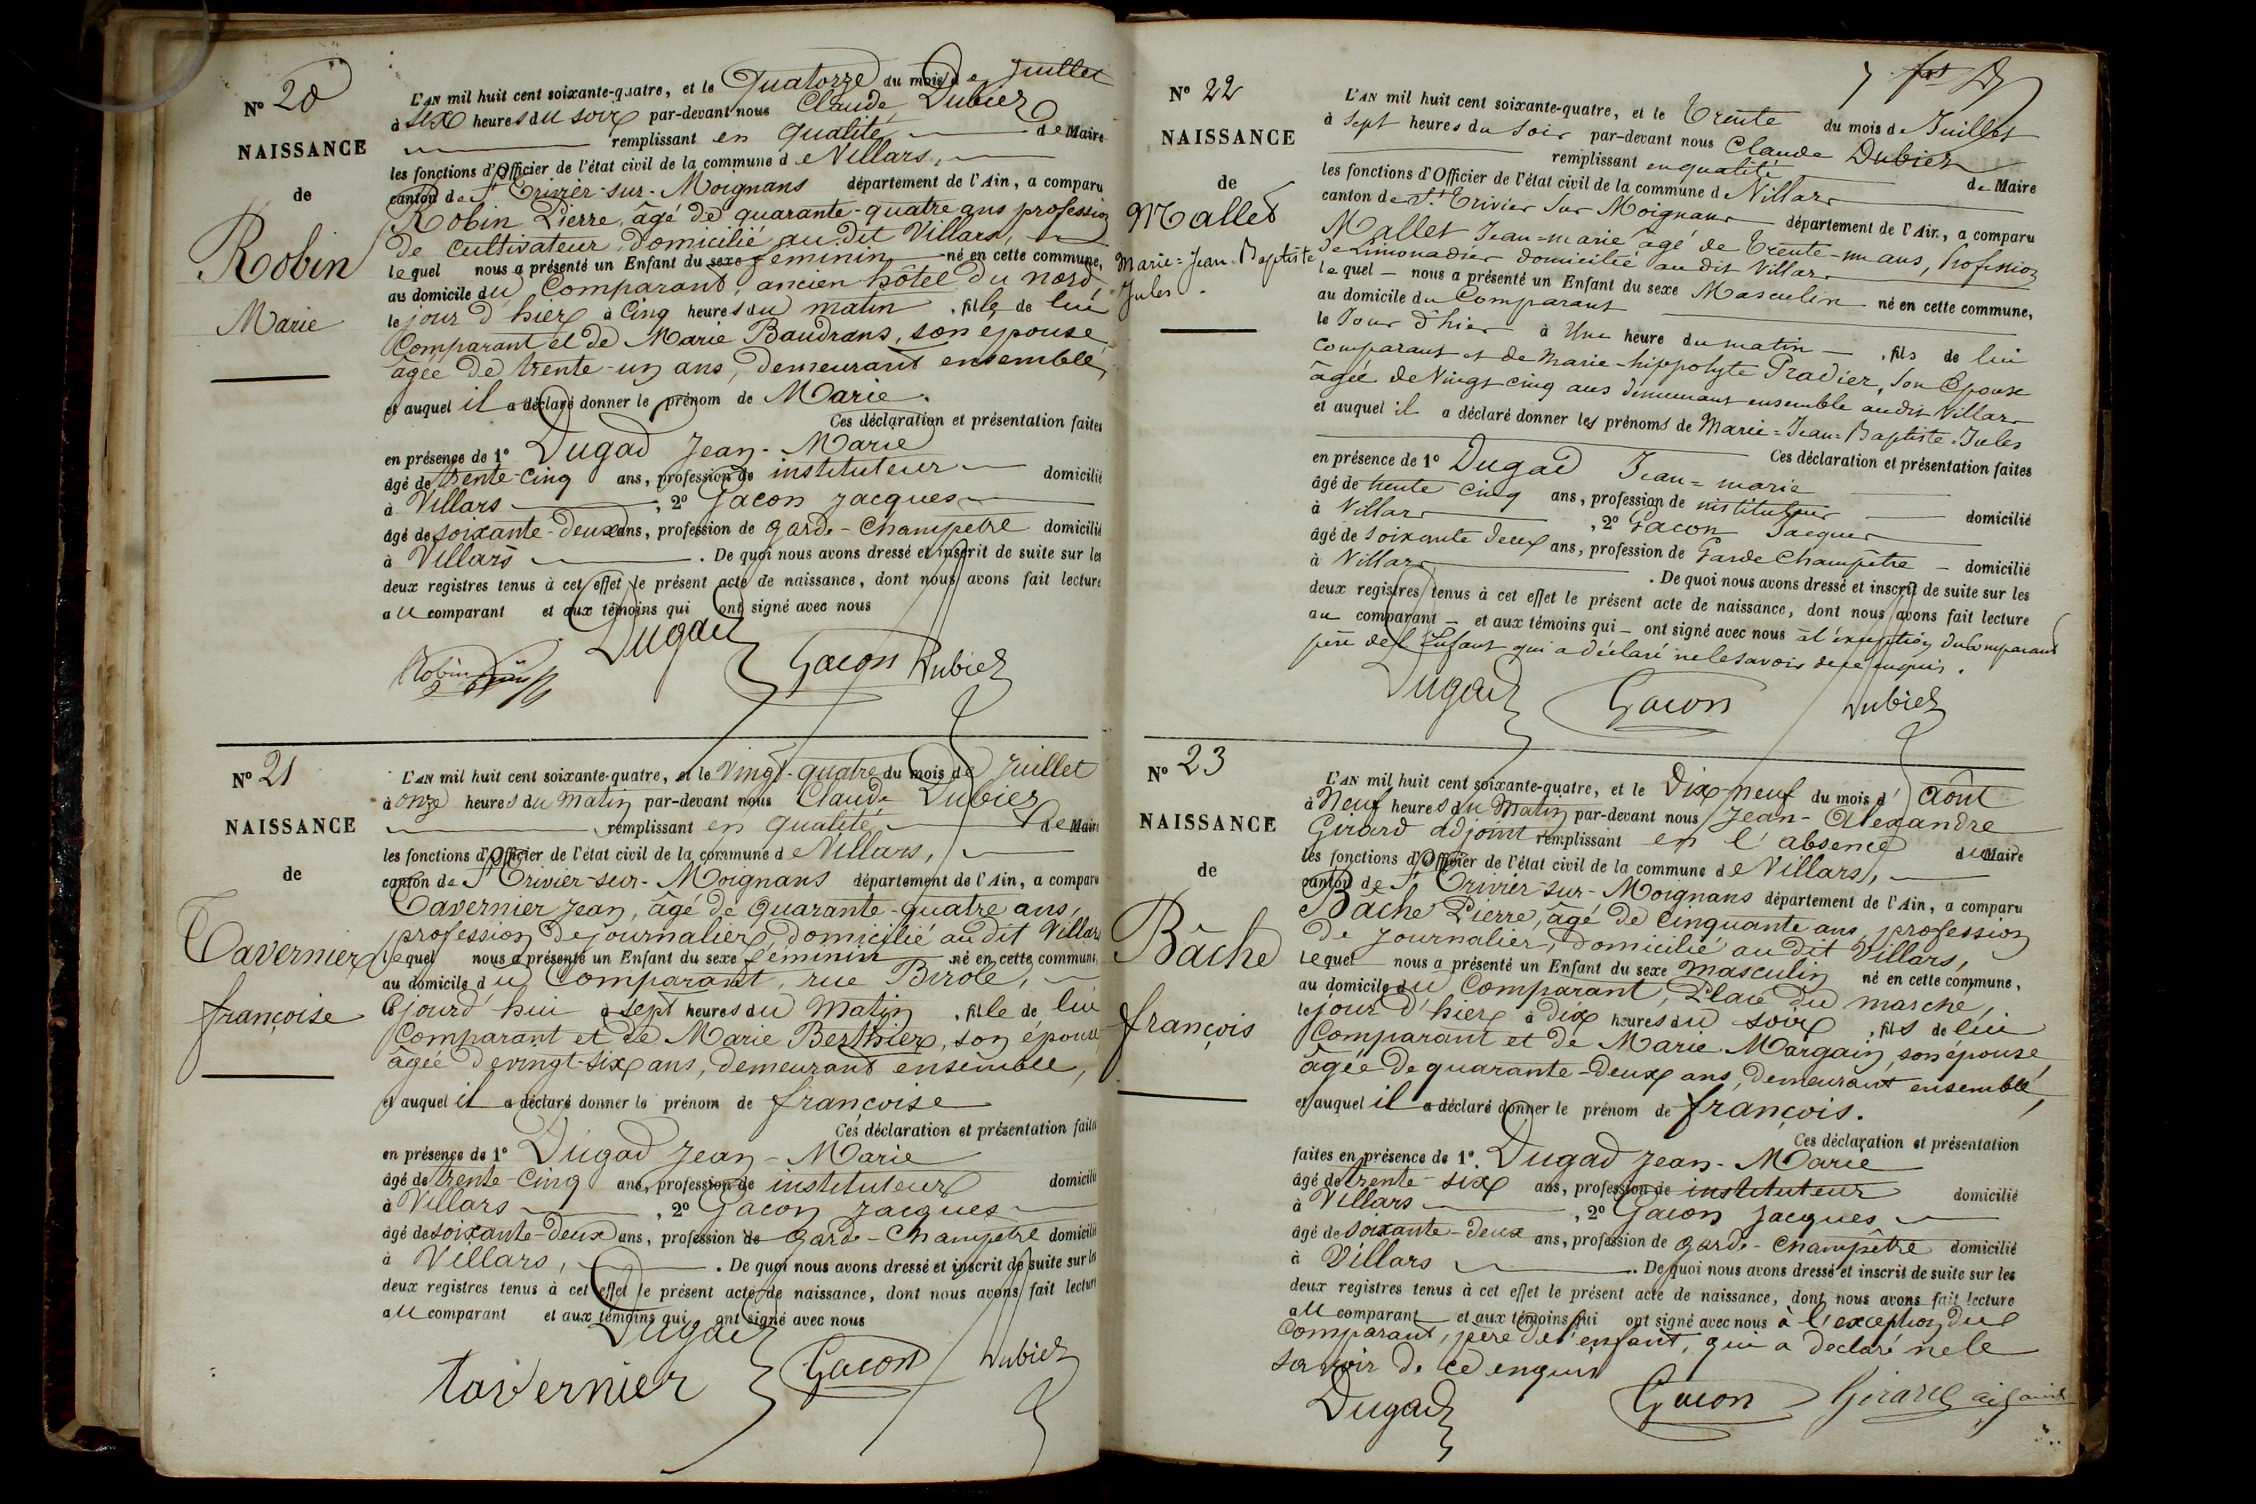 N° 20
NAISSANCE
de
Robin
Marie
L'AN mil huit cent soixante-quatre, et le Quatorze du mois de Juillet
à six heures du soir par-devant nous Claude Dubiez
remplissant en qualité de Maire
les fonctions d'Officier de l'état civil de la commune de Villars,
canton de St Trivier-sur-Moignans département de l'Ain, a comparu
Robin Pierre, âgé de quarante-quatre ans profession
de cultivateur domicilié au dit Villars,
lequel nous a présenté un Enfant du sexe féminin né en cette commune,
au domicile du Comparant, ancien hôtel du nord
le jour d'hier à Cinq heures du matin, fille de lui
Comparant et de Marie Baudrans, son épouse
âgée de trente-un ans, demeurant ensemble,
et auquel il a déclaré donner le prénom de Marie.
Ces déclaration et présentation faites
en présence de 1° Dugad Jean-Marie
âgé de trente-cinq ans, profession de instituteur domicilié
à Villars, 2° Gacon Jacques
âgé de soixante-deux ans, profession de garde-champetre domicilié
à Villars. De quoi nous avons dressé et inscrit de suite sur les
deux registres tenus à cet effet le présent acte de naissance, dont nous avons fait lecture
au comparant et aux témoins qui ont signé avec nous
Dugad
Robin Gacon Dubiez
N° 21
NAISSANCE
de
Tavernier
françoise
L'AN mil huit cent soixante-quatre, et le Vingt-quatre du mois de Juillet
à onze heures du matin par-devant nous Claude Dubiez
remplissant en qualité de Maire
les fonctions d'Officier de l'état civil de la commune de Villars,
canton de St Trivier-sur-Moignans département de l'Ain, a comparu
Tavernier Jean, âgé de quarante-quatre ans,
profession de journalier, domicilié au dit Villars
lequel nous a présenté un Enfant du sexe féminin né en cette commune,
au domicile du Comparant, rue Birole,
le jourd'hui à sept heures du matin, fille de lui
Comparant et de Marie Berthier, son épouse
âgée de vingt-six ans, demeurant ensemble,
et auquel il a déclaré donner le prénom de francoise
Ces déclaration et présentation faites
en présence de 1° Dugad Jean-Marie
âgé de trente-cinq ans, profession de instituteur domicilié
à Villars, 2° Gacon Jacques
âgé de soixante-deux ans, profession de garde-champetre domicilié
à Villars, . De quoi nous avons dressé et inscrit de suite sur les
deux registres tenus à cet effet le présent acte de naissance, dont nous avons fait lecture
au comparant et aux témoins qui ont signé avec nous
Dugad
tavernier Gacon Dubiez
N° 22
NAISSANCE
de
Mallet
Marie=Jean-Baptiste
Jules.
L'AN mil huit cent soixante-quatre, et le Trente du mois de Juillet
à Sept heures du Soir par-devant nous Claude Dubiez
remplissant en qualité de Maire
les fonctions d'Officier de l'état civil de la commune de Villars
canton de St Trivier Sur Moignans département de l'Ain, a comparu
Mallet Jean=marie âgé de Trente-un ans, Profession
de Limonadier domicilié au dit Villars
lequel nous a présenté un Enfant du sexe Masculin né en cette commune,
au domicile du Comparant
le Jour d'hier à Une heure du matin, fils de lui
Comparant et de marie-hippolyte Pradier, Son Epouse
âgée de Vingt cinq ans demeurant ensemble au dit Villars
et auquel il a déclaré donner les prénoms de Marie=Jean=Baptiste-Jules
Ces déclaration et présentation faites
en présence de 1° Dugad Jean=marie
âgé de trente cinq ans, profession de instituteur domicilié
à Villars, 2° Gacon Jacques
âgé de soixante deux ans, profession de Garde Champêtre domicilié
à Villars. De quoi nous avons dressé et inscrit de suite sur les
deux registres tenus à cet effet le présent acte de naissance, dont nous avons fait lecture
au comparant et aux témoins qui ont signé avec nous à l'exception du Comparant
père de l'Enfant qui a déclaré ne le savoir de ce enquis.
Dugad Gacon Dubiez
N° 23
NAISSANCE
de
Bâche
françois
L'AN mil huit cent soixante-quatre, et le Dix-neuf du mois d'Août
à Neuf heures du Matin par-devant nous Jean-Alexandre
Girard adjoint remplissant en l'absence du Maire
les fonctions d'Officier de l'état civil de la commune de Villars,
canton de St Trivier-sur-Moignans département de l'Ain, a comparu
Bâche Pierre, âgé de cinquante ans, profession
de journalier, domicilié au dit Villars,
lequel nous a présenté un Enfant du sexe masculin né en cette commune,
au domicile du Comparant, Place du marché,
le jour d'hier à dix heures du soir, fils de lui
Comparant et de Marie Margain, son épouse,
âgée de quarante-deux ans, demeurant ensemble,
et auquel il a déclaré donner le prénom de françois.
Ces déclaration et présentation
faites en présence de 1°. Dugad Jean-Marie
âgé de trente-six ans, profession de instituteur domicilié
à Villars, 2° Gacon Jacques
âgé de soixante-deux ans, profession de garde-champêtre domicilié
à Villars. De quoi nous avons dressé et inscrit de suite sur les
deux registres tenus à cet effet le présent acte de naissance, dont nous avons fait lecture
au comparant et aux témoins qui ont signé avec nous à l'exception du
Comparant, père de l'enfant, qui a declaré ne le
savoir de ce enquis
Dugad Gacon Girard adjoint